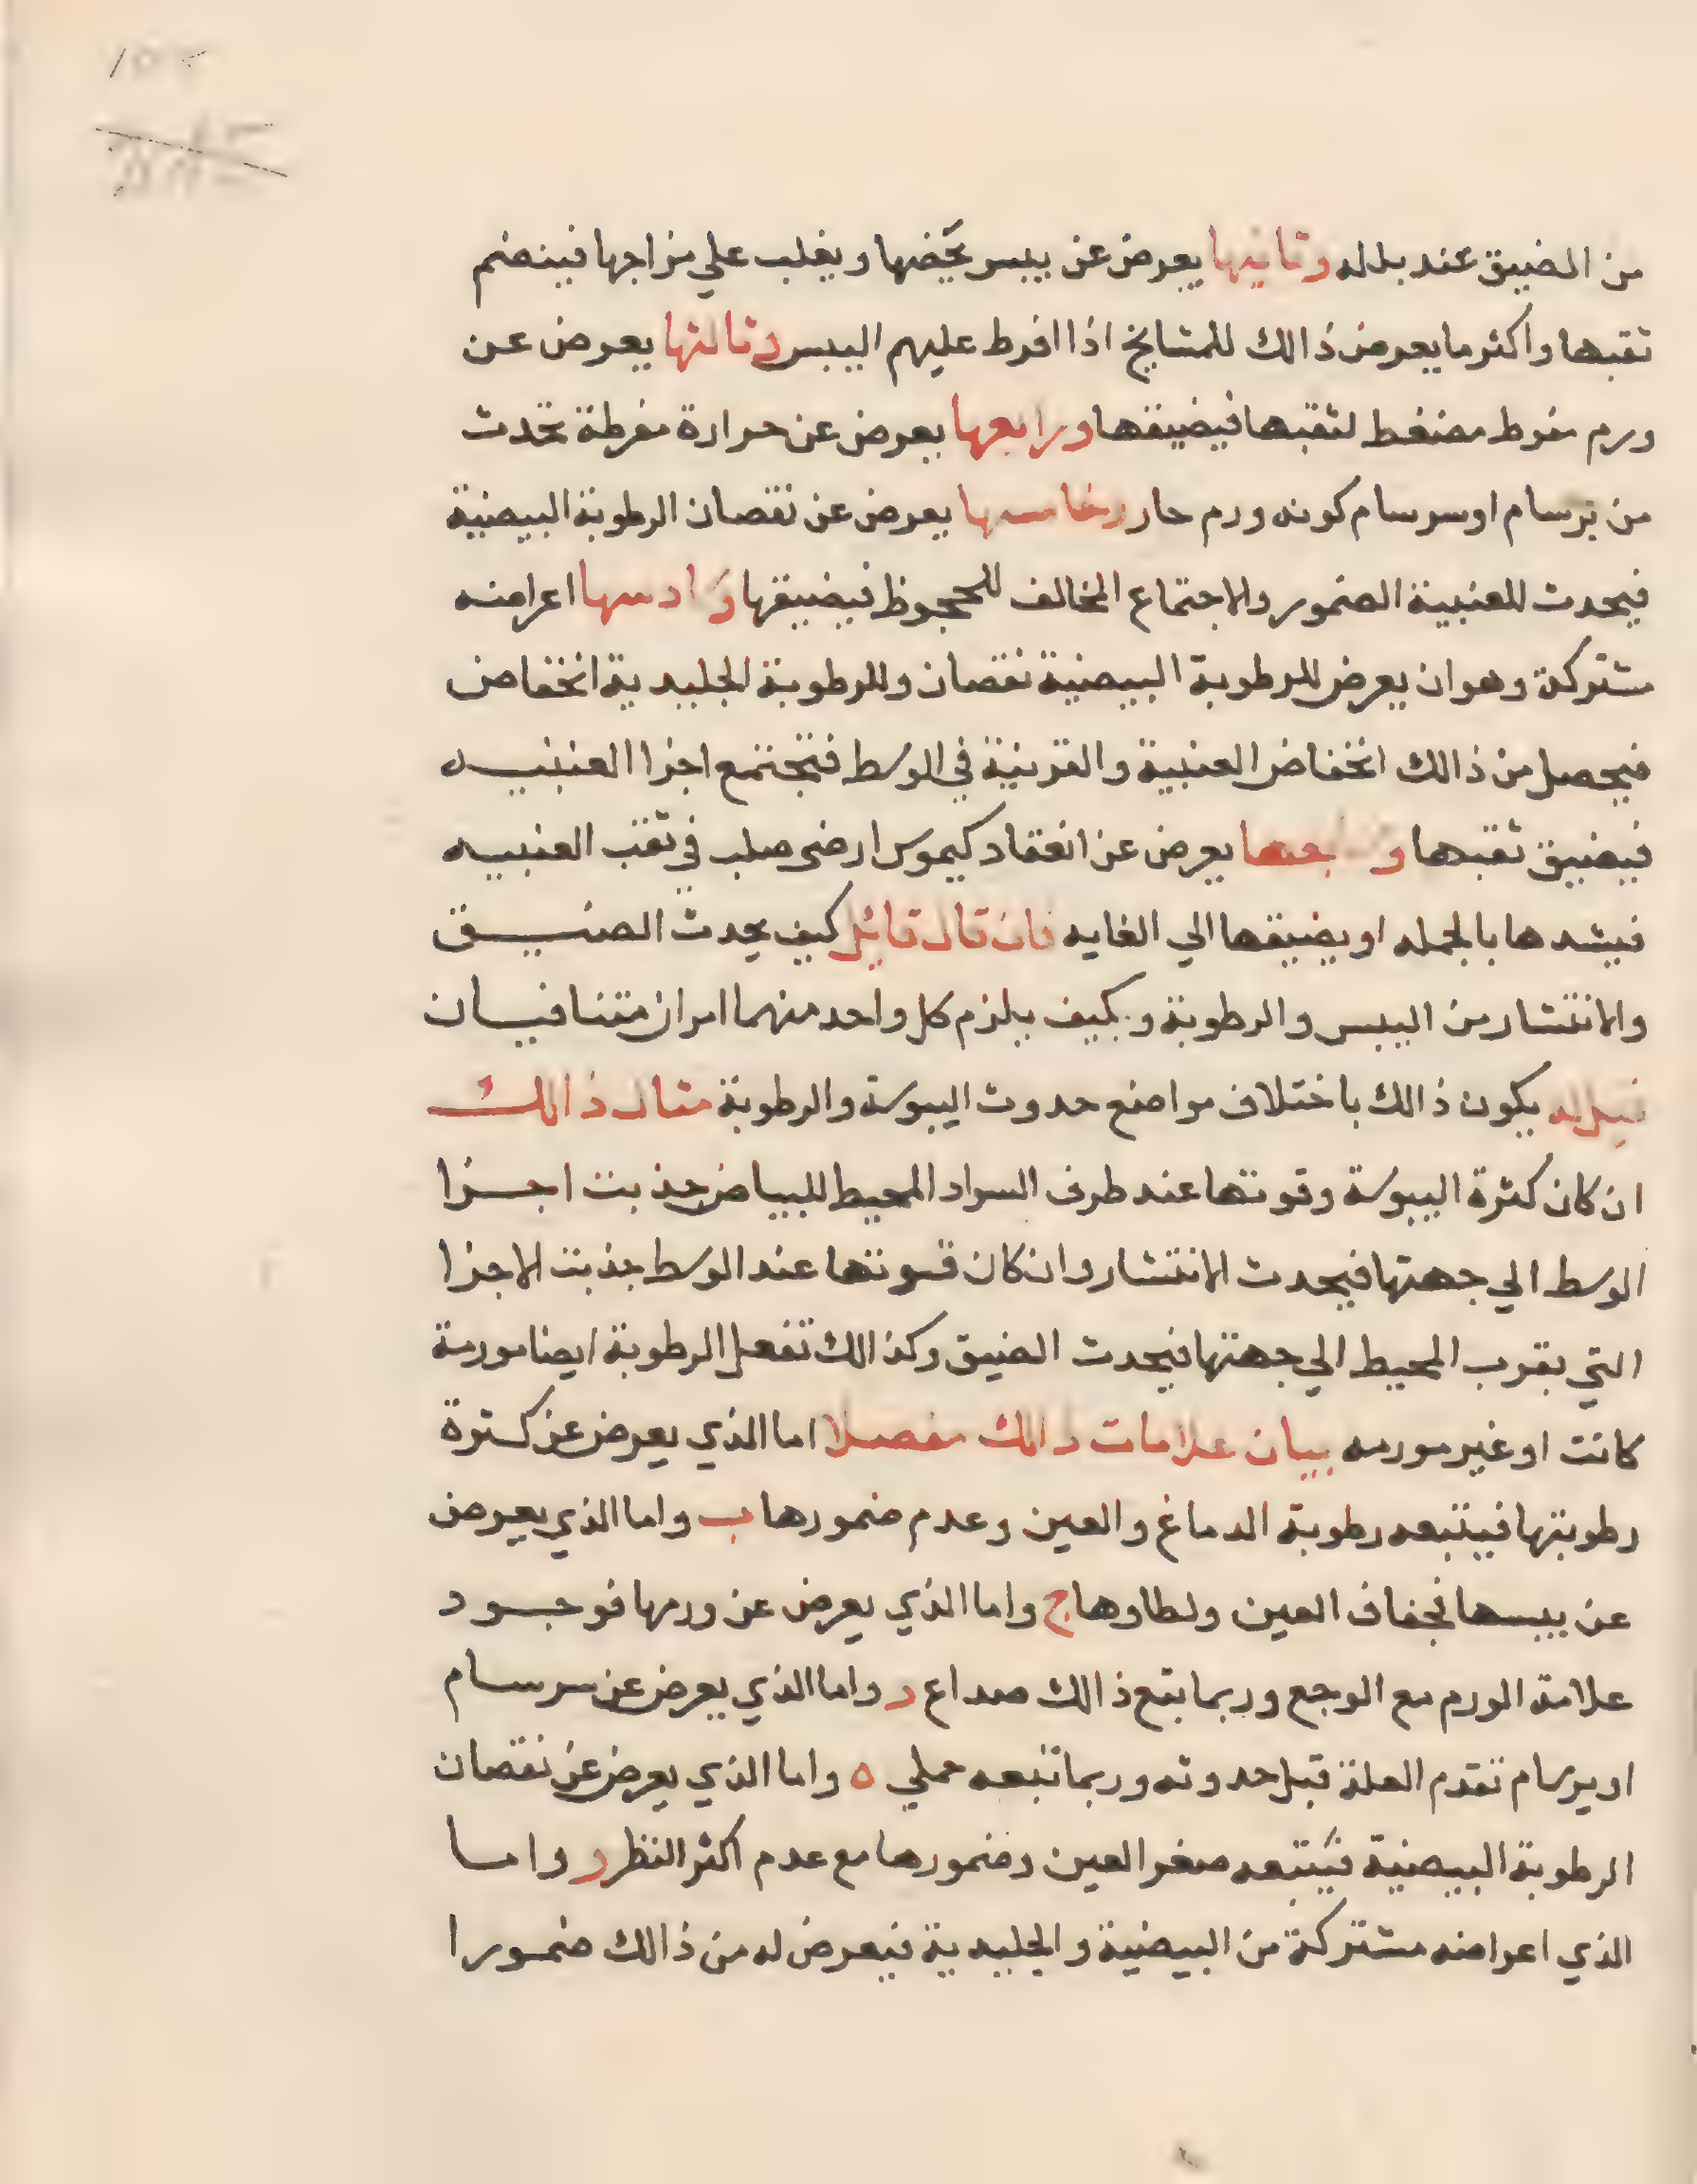 من الضيق عند بلله وثانيها يعرض عن يبس يخضها ويغلب علي مزاجها فينضم
ثقبها واكثر ما يعرض ذالك للمشايخ اذا افرط عليهم اليبس وثالثها يعرض عن
ورم مفرط مضغط لثقبها فيضيقها ورابعها يعرض عن حرارة مفرطة تحدث
من برسام او سرسام كونه ورم حار وخامسها يعرض عن نقصان الرطوبة البيضية
فيحدث للعنبية الضمور والاجتماع المخالف للجحوظ فيضيقها وسادسها اعراضه
مشتركة وهو ان يعرض للرطوبة البيضية نقصان وللرطوبة الجليدية انخفاض
فيحصل من ذالك انخفاض العنبية والقرنية في الوسط فتجتمع اجزا العنبيه
فيضيق ثقبها وسابعها يعرض عن انعقاد كيموس ارضى صلب في ثقب العنبيه
فيشدها بالجمله او يضيقها الي الغايه فان قال قائل كيف يحدث الضيق
والانتشار من اليبس والرطوبة وبكيف يلزم كل واحد منهما امران متنافيان
قيل له يكون ذالك باختلاف مواضع حدوث اليبوسة والرطوبة مثال ذالك
ان كان كثرة اليبوسة وقوتها عند طرف السواد المحيط للبياض جذبت اجزا
الوسط الي جهتها فيحدث الانتشار وان كان قوتها عند الوسط جذبت الاجزا
التي بقرب المحيط الي جهتها فيحدث الضيق وكذالك تفعل الرطوبة ايضا مورمة
كانت او غير مورمه بيان علامات ذالك مفصلا اما الذي يعرض عن كثرة
رطوبتها فيتبعه رطوبة الدماغ والعين وعدم ضمورها ب واما الذي يعرض
عن يبسها فجفاف العين ولطاوها ج واما الذي يعرض عن ورمها فوجود
علامة الورم مع الوجع وربما بتع ذالك صداع د واما الذي يعرض عن سرسام
او برسام تقدم العلة قبل حدوثه وربما تتبعه حملي ه واما الذي يعرض عن نقصان
الرطوبة البيضية فيتبعه صغر العين وضمورها مع عدم اكثر النظر و واما
الذي اعراضه مشتركة من البيضية والجليدية فيعرض له من ذالك ضمورا